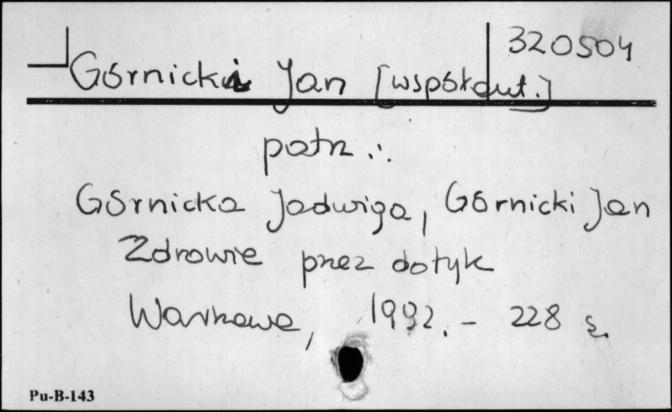 320504
Górnicki Jan [współaut.]
patrz.:
Górnicka Jadwiga, Górnicki Jan
Zdrowie przez dotyk
Warszawa, 1992. - 228 s.
Pu-B-143